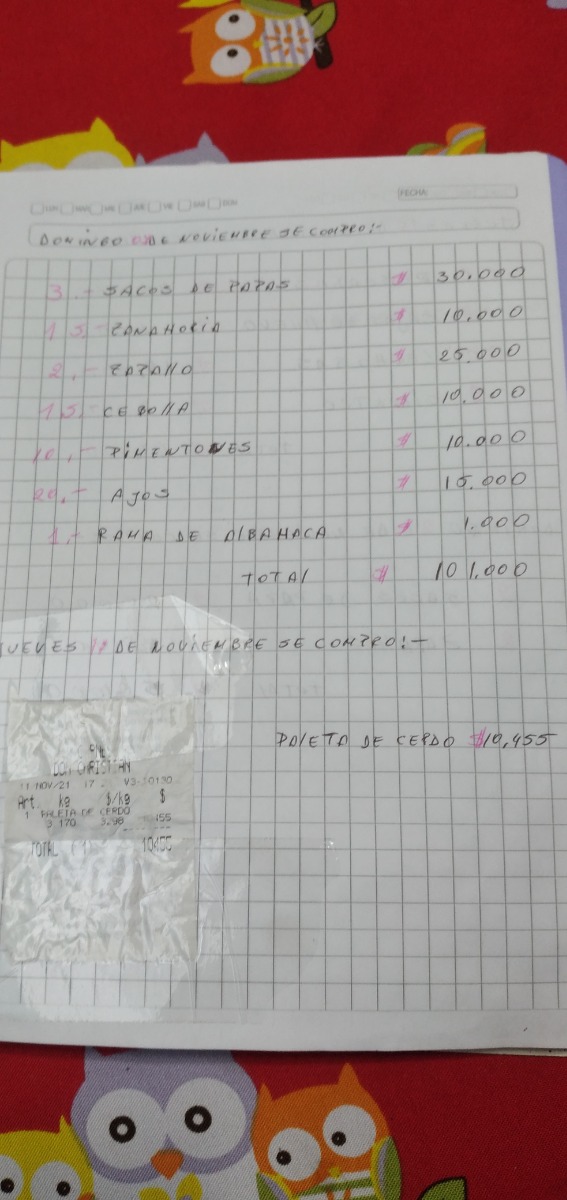 FECHA:
DOMINGO DE NOVIEMBRE SE COMPRO:-
3.- SACOS DE PAPAS $ 30.000
1 S.- ZANAHORIA $ 10.000
2.- ZAPALLO $ 25.000
1 S. CEBOLLA $ 10.000
10.- PIMENTONES $ 10.000
20.- AJOS $ 15.000
1.- RAMA DE ALBAHACA $ 1.000
TOTAL $ 101.000
JUEVES 11 DE NOVIEMBRE SE COMPRO:-
PALETA DE CERDO $10,455
DON CHRISTIAN
11 NOV/21 17 V3-
Art. kg $/kg $
1 PALETA DE CERDO
3.170 3.98 155
TOTAL ( 1) 10455